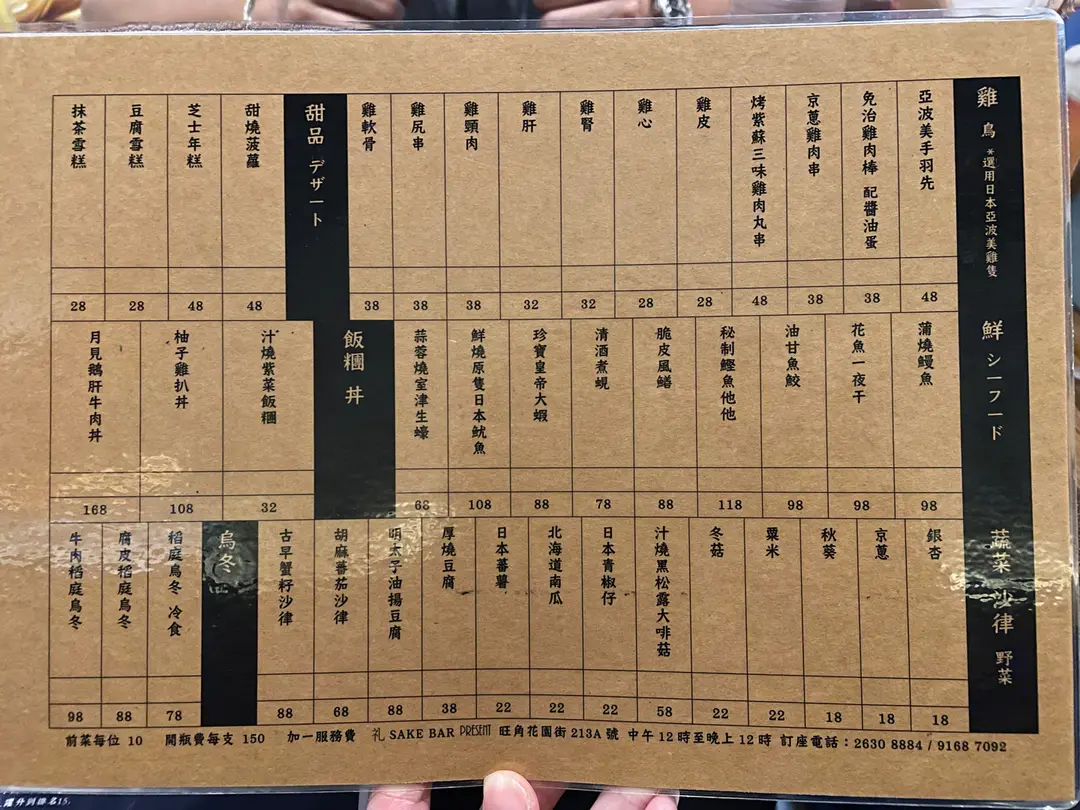 雞 鳥 *選用日本亞波美雞隻
亞波美手羽先 48
免治雞肉棒 配醬油蛋 38
京蔥雞肉串 38
烤紫蘇三味雞肉丸串 48
雞皮 28
雞心 28
雞腎 32
雞肝 32
雞頸肉 38
雞尻串 38
雞軟骨 38
甜品 デザート
甜燒菠蘿 48
芝士年糕 48
豆腐雪糕 28
抹茶雪糕 28
鮮 シーフード
蒲燒鰻魚 98
花魚一夜干 98
油甘魚鮫 98
秘制鰹魚他他 118
脆皮風鱔 88
清酒煮蜆 78
珍寶皇帝大蝦 88
鮮燒原隻日本魷魚 108
蒜蓉燒室津生蠔 68
飯糰 丼
汁燒紫菜飯糰 32
柚子雞扒丼 108
月見鵝肝牛肉丼 168
蔬菜 沙律 野菜
銀杏 18
京蔥 18
秋葵 18
粟米 22
冬菇 22
汁燒黑松露大啡菇 58
日本青椒仔 22
北海道南瓜 22
日本蕃薯 22
厚燒豆腐 38
明太子油揚豆腐 88
胡麻蕃茄沙律 68
古早蟹籽沙律 88
烏冬
稻庭烏冬 冷食 78
腐皮稻庭烏冬 88
牛肉稻庭烏冬 98
前菜每位 10 開瓶費每支 150 加一服務費 礼 SAKE BAR PRESENT 旺角花園街 213A 號 中午 12 時至晚上 12 時 訂座電話：2630 8884 / 9168 7092